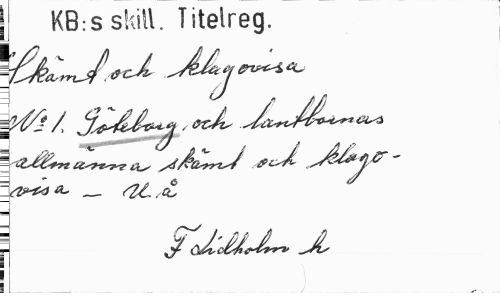 KB:s skill. Titelreg.
Skämt och klagovisa
No 1. Göteborg och lantbornas
allmänna skämt och klago-
visa – U. å
F Lidholm h